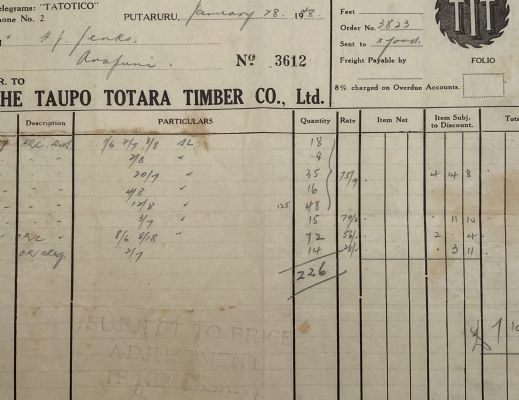 elegrams: "TATOTICO"
hone No. 2
PUTARURU, January 28. 1948
Feet
Order No. 3823
Sent to
Freight Payable by
FOLIO
8% charged on Overdue Accounts.
TTT
H.J. Jenks.
Arapuni.
No 3612
R. TO
HE TAUPO TOTARA TIMBER CO., Ltd.
Description
PARTICULARS
Quantity
Rate
Item Net
Item Subj. to Discount.
Tota
1/6 2/7 3/8 SL 18
2/8 " 9
20/7 " 35 75/9 4 14 8
4/8 " 16
12/8 " 125 48
3/7 " 15 11 10
8/6 8/18 72 56/- 2 4
2/7 14 3 11
226
SUBJECT TO PRICE
ADJUSTMENT
IF NECESSARY